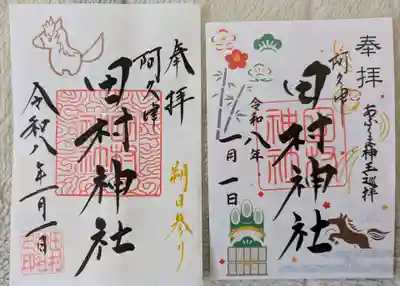 奉拝
阿久津
田村神社
朔日参り
令和八年一月一日
奉拝
阿久津
田村神社
令和八年
一月一日